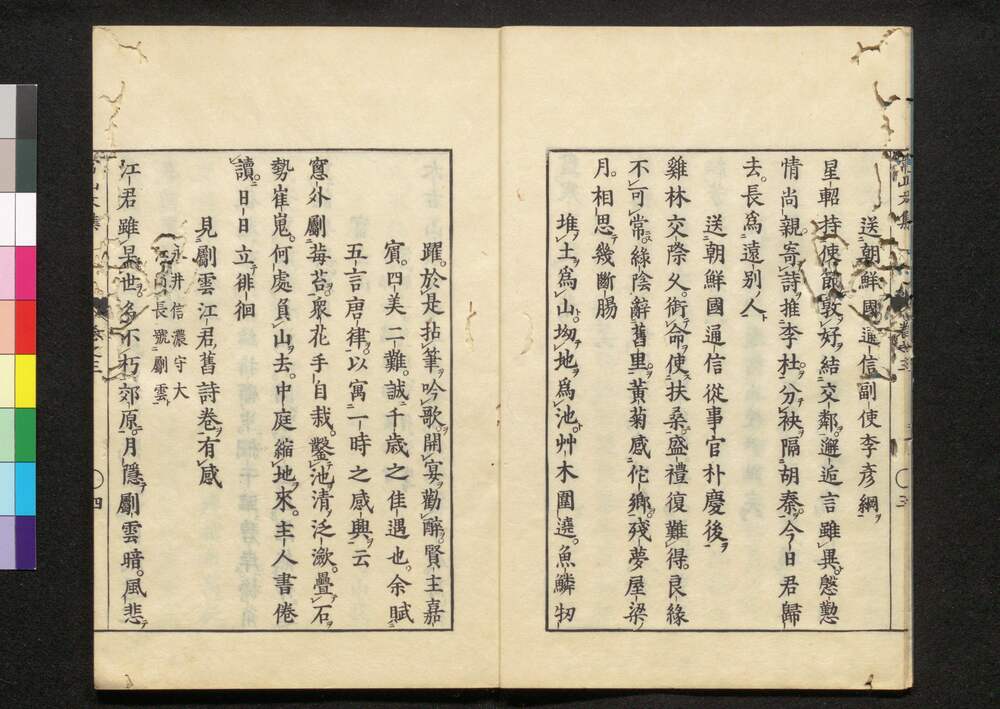 送朝鮮國通信副使李彦綱
星軺持使節敦好結交鄰邂逅言雖異慇懃
情尚親寄詩推李杜分袂隔胡秦今日君歸
去長爲遠别人
送朝鮮國通信從事官朴慶後
雞林交際久銜命使扶桑盛禮復難得良緣
不可常綠陰辭舊里黄菊感佗鄉殘夢屋梁
月相思幾斷腸
堆土爲山坳地爲池艸木圍遶魚鱗牣
躍於是拈筆吟歌開宴勸醉賢主嘉
賔四美二難誠千歳之佳遇也余賦
五言唐律以寓一時之感興云
窓外劚莓苔衆花手自栽鑿池清泛瀲疊石
勢崔嵬何處負山去中庭縮地來主人書倦
讀日日立徘徊
見劚雲江君舊詩卷有感
永井信濃守大
江尚長號劚雲
江君雖早世多不朽郊原月隱劚雲暗風悲
卷之三
四